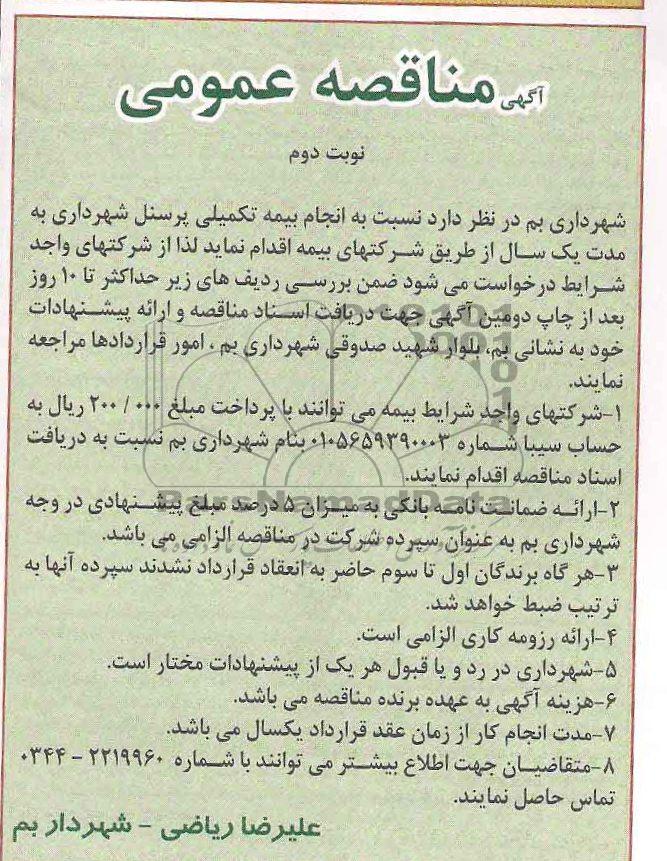 آگهی مناقصه عمومی
نوبت دوم
شهرداری بم در نظر دارد نسبت به انجام بیمه تکمیلی پرسنل شهرداری به
مدت یک سال از طریق شرکتهای بیمه اقدام نماید لذا از شرکتهای واجد
شرایط درخواست می شود ضمن بررسی ردیف های زیر حداکثر تا ۱۰ روز
بعد از چاپ دومین آگهی جهت دریافت اسناد مناقصه و ارائه پیشنهادات
خود به نشانی بم، بلوار شهید صدوقی شهرداری بم ، امور قراردادها مراجعه
نمایند.
۱-شرکتهای واجد شرایط بیمه می توانند با پرداخت مبلغ ۲۰۰/۰۰۰ ریال به
حساب سیبا شماره ۰۱۰۵۶۵۹۳۹۰۰۰۳ بنام شهرداری بم نسبت به دریافت
اسناد مناقصه اقدام نمایند.
۲-ارائه ضمانت نامه بانکی به میزان ۵ درصد مبلغ پیشنهادی در وجه
شهرداری بم به عنوان سپرده شرکت در مناقصه الزامی می باشد.
۳-هر گاه برندگان اول تا سوم حاضر به انعقاد قرارداد نشدند سپرده آنها به
ترتیب ضبط خواهد شد.
۴-ارائه رزومه کاری الزامی است.
۵-شهرداری در رد و یا قبول هر یک از پیشنهادات مختار است.
۶-هزینه آگهی به عهده برنده مناقصه می باشد.
۷-مدت انجام کار از زمان عقد قرارداد یکسال می باشد.
۸-متقاضیان جهت اطلاع بیشتر می توانند با شماره ۲۲۱۹۹۶۰ - ۰۳۴۴
تماس حاصل نمایند.
علیرضا ریاضی - شهردار بم
ParsNamadData